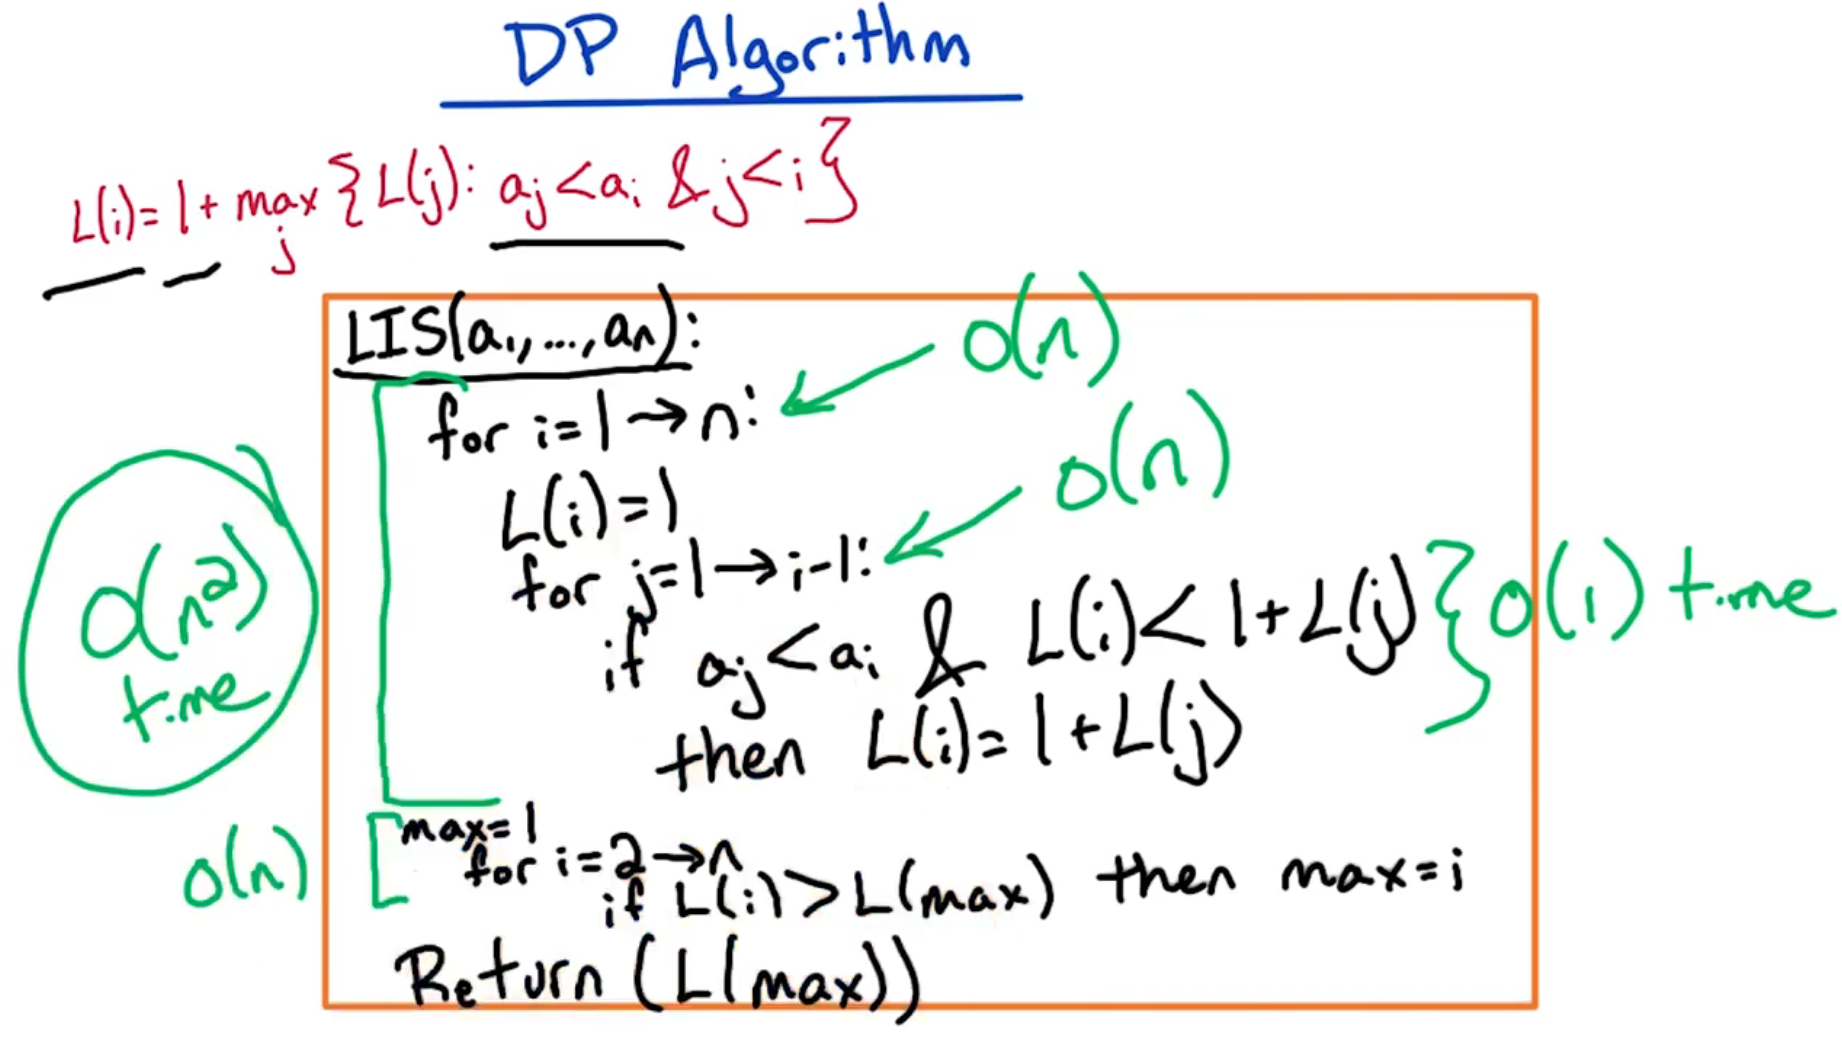 DP Algorithm
L(i)= 1 + max {L(j): aj < ai & j < i}
j
LIS(a1, ..., an):
O(n)
for i = 1 → n:
O(n)
L(i) = 1
for j = 1 → i-1:
if aj < ai & L(i) < 1 + L(j)
O(1) time
then L(i) = 1 + L(j)
O(n²)
time
max = 1
for i = 2 → n
O(n)
if L(i) > L(max) then max = i
Return (L(max))